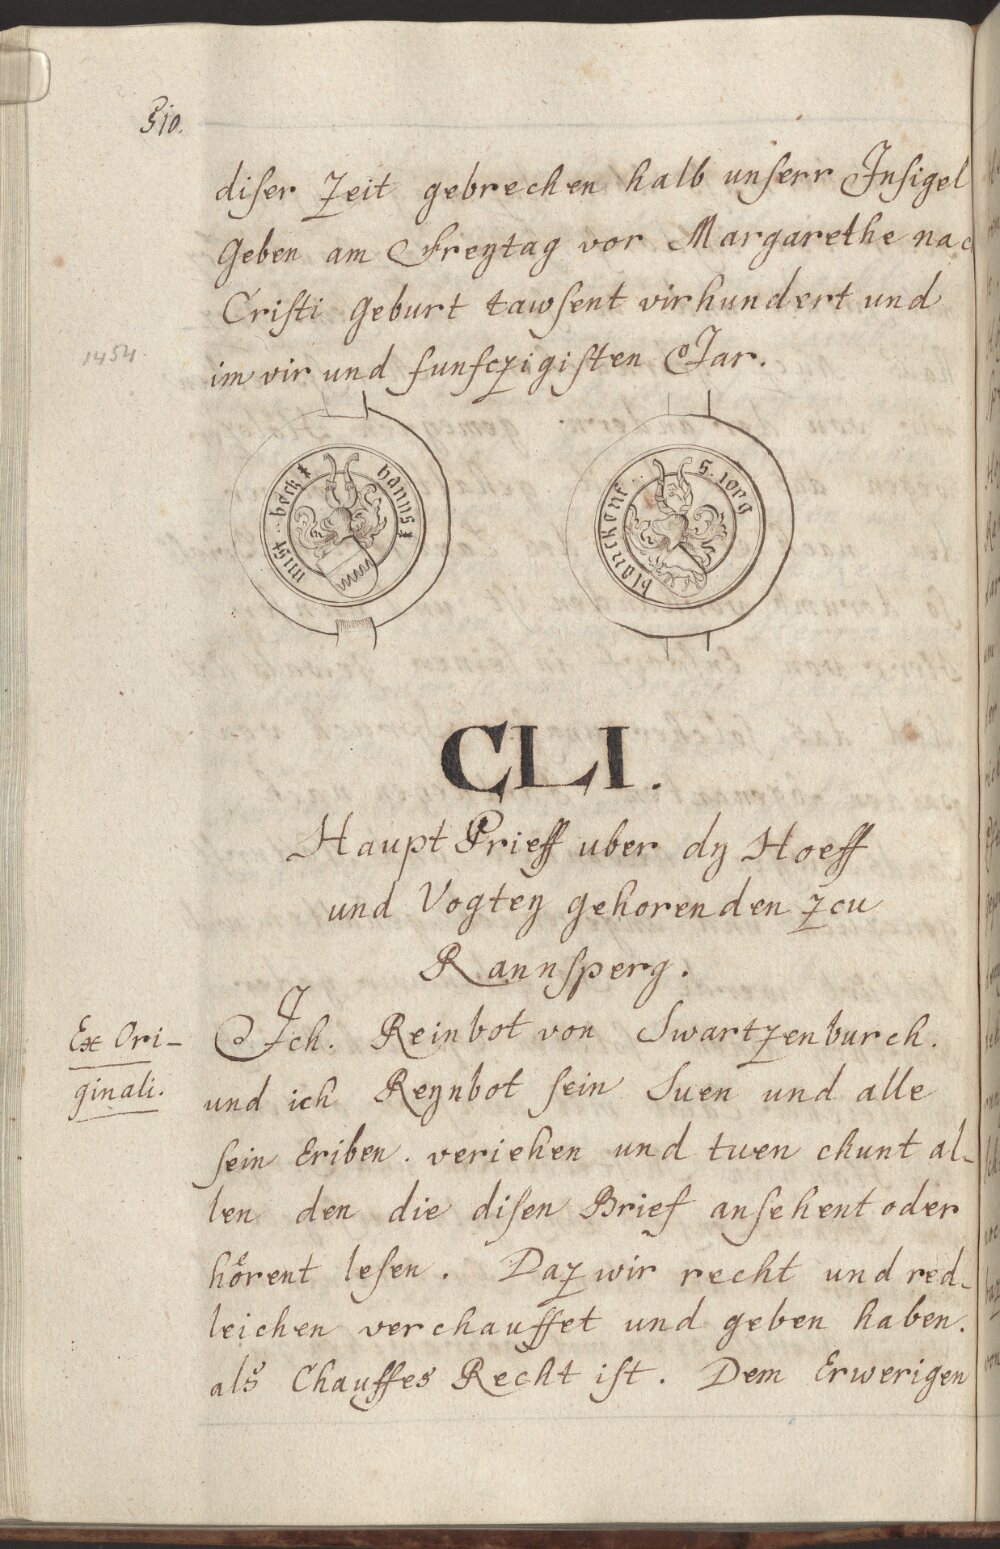 510.
diser Zeit gebrechen halb unserr Insigel
Geben am Freytag vor Margarethe nac
Cristi Geburt tawsent virhundert und
1454.
im vir und funfczigisten Jar.
hanns mist beck
s. iorg blanckenf
CLI.
Haupt Prieff uber dy Hoeff
und Vogtey gehorenden zcu
Rannsperg.
Ex Ori-
ginali.
Ich. Reinbot von Swartzenburch.
und ich Reynbot sein Suen und alle
sein Eriben. veriehen und tuen chunt al-
len den die disen Brief ansehent oder
hoͤrent lesen. Daz wir recht und red-
leichen verchauffet und geben haben.
als Chauffes Recht ist. Dem Erwerigen